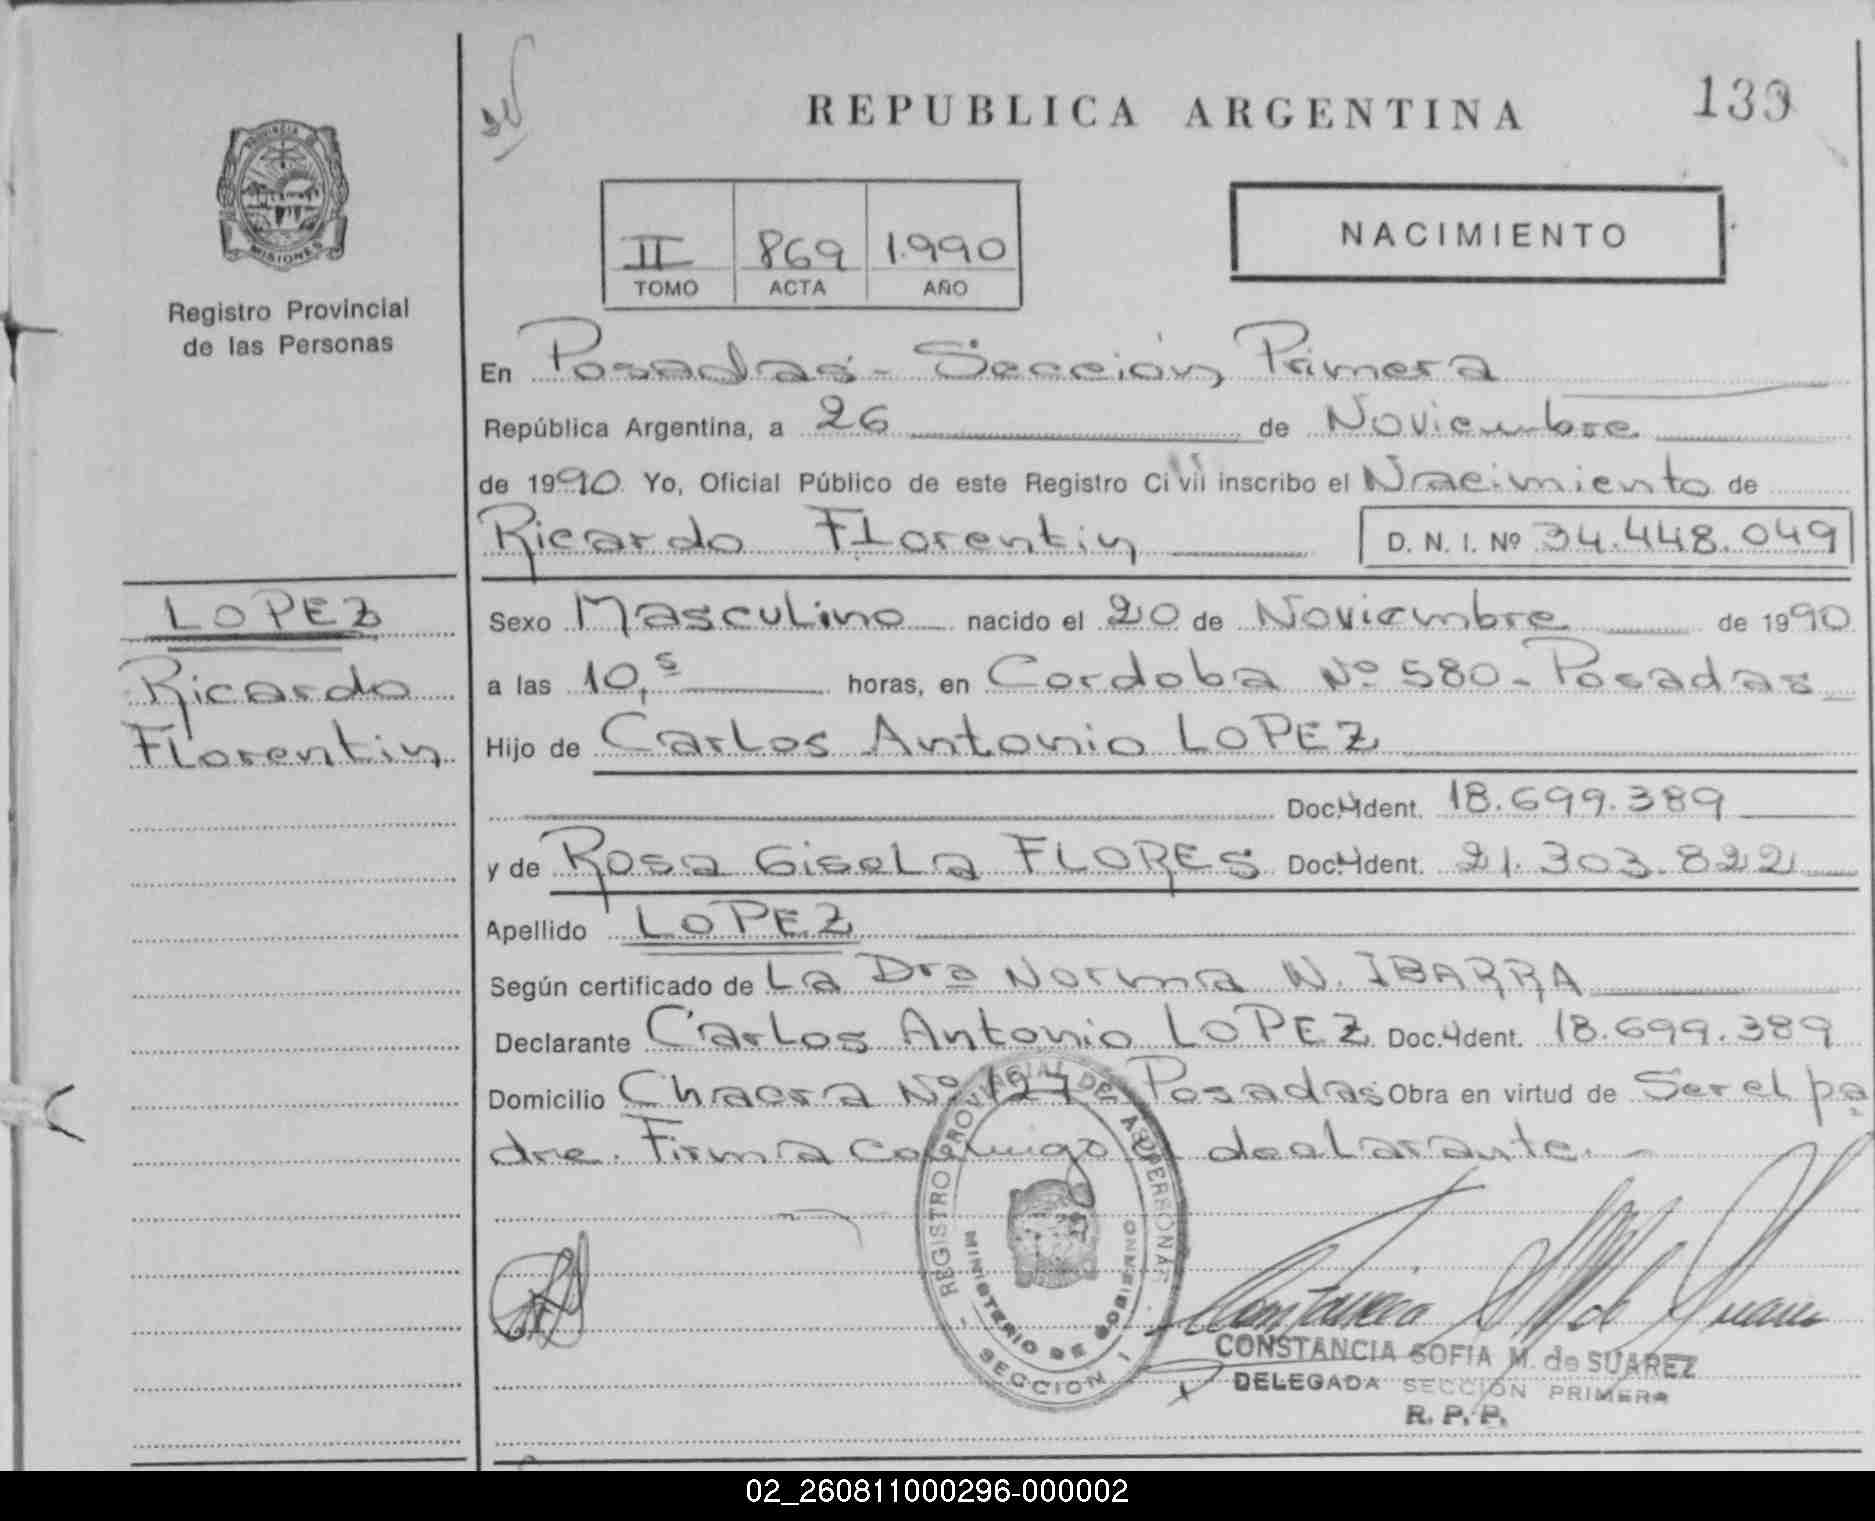 REPUBLICA ARGENTINA
139
PROVINCIA DE
MISIONES
Registro Provincial
de las Personas
II 869 1.990
TOMO ACTA AÑO
NACIMIENTO
En Posadas - Sección Primera
República Argentina, a 26 de Noviembre
de 1990 Yo, Oficial Público de este Registro Civil inscribo el Nacimiento de
Ricardo Florentin D. N. I. Nº 34.448.049
LOPEZ
Ricardo
Florentin
Sexo Masculino nacido el 20 de Noviembre de 1990
a las 10,5 horas, en Cordoba Nº 580 - Posadas
Hijo de Carlos Antonio LOPEZ
Doc. Ident. 18.699.389
y de Rosa Gisela FLORES Doc. Ident. 21.303.822
Apellido LOPEZ
Según certificado de La Dra Norma N. IBARRA
Declarante Carlos Antonio LOPEZ Doc. Ident. 18.699.389
Domicilio Chacra Nº 127 - Posadas Obra en virtud de Ser el pa
dre. Firma conmigo el declarante. -
REGISTRO PROVINCIAL DE LAS PERSONAS
MINISTERIO DE GOBIERNO
- SECCION I -
CONSTANCIA SOFIA M. de SUAREZ
DELEGADA SECCION PRIMERA
R. P. P.
02_260811000296-000002